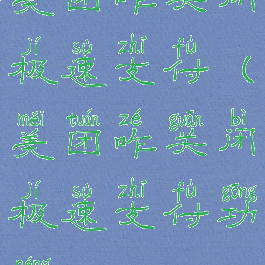 美团咋关闭
jí sù zhī fù
极速支付（
měi tuán zé guān bì
美团咋关闭
jí sù zhī fù gōng
极速支付功
néng